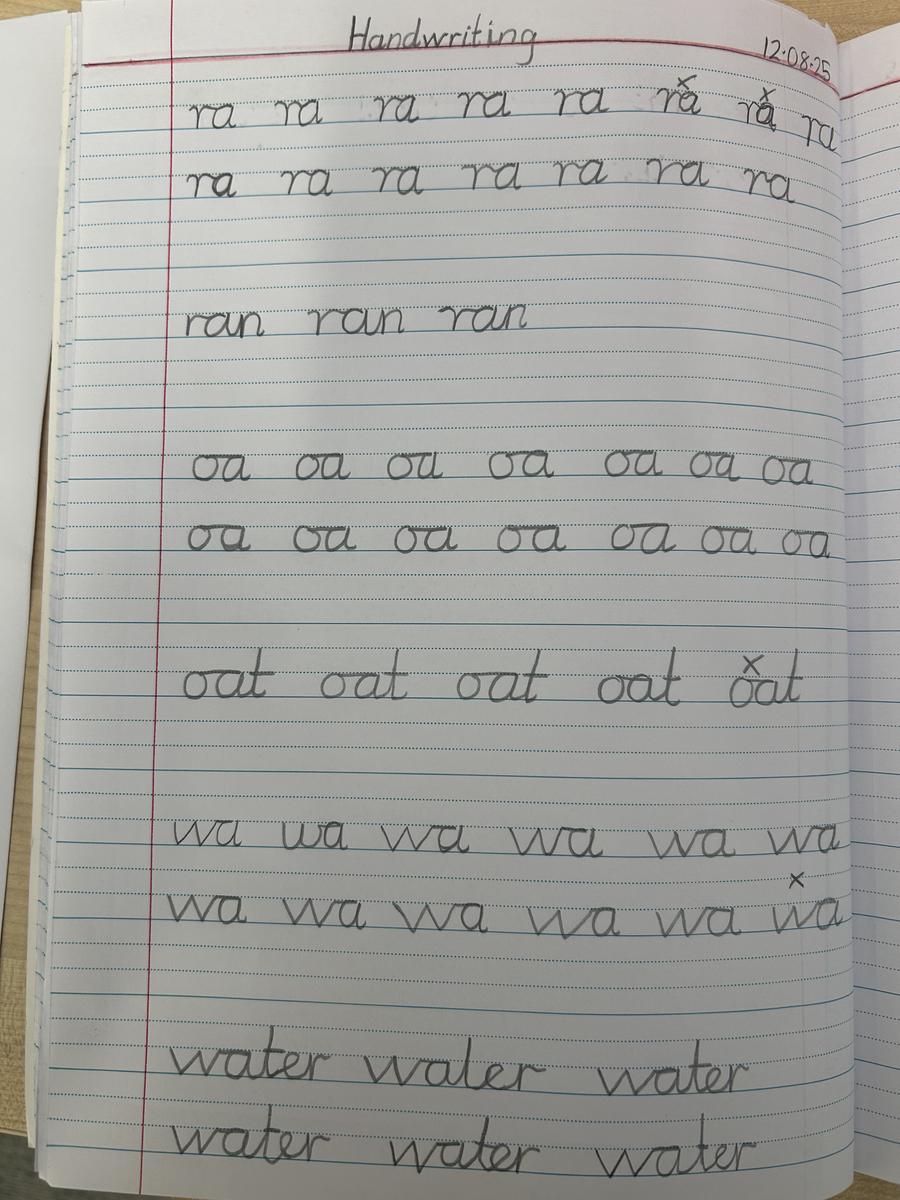 Handwriting
12.08.25
ra ra ra ra ra ra ra ra
ra ra ra ra ra ra ra
ran ran ran
oa oa oa oa oa oa oa
oa oa oa oa oa oa oa
oat oat oat oat oat
wa wa wa wa wa wa
wa wa wa wa wa wa
water water water
water water water